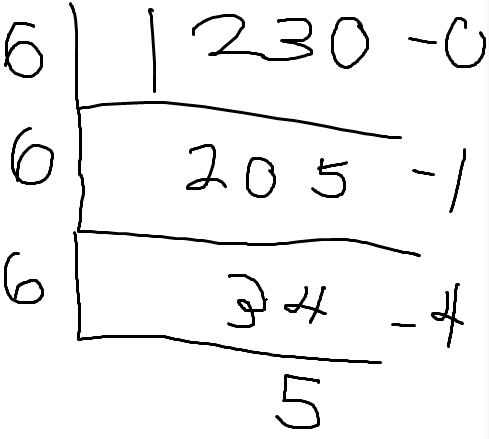 6 1230 -0
6 205 -1
6 34 -4
5